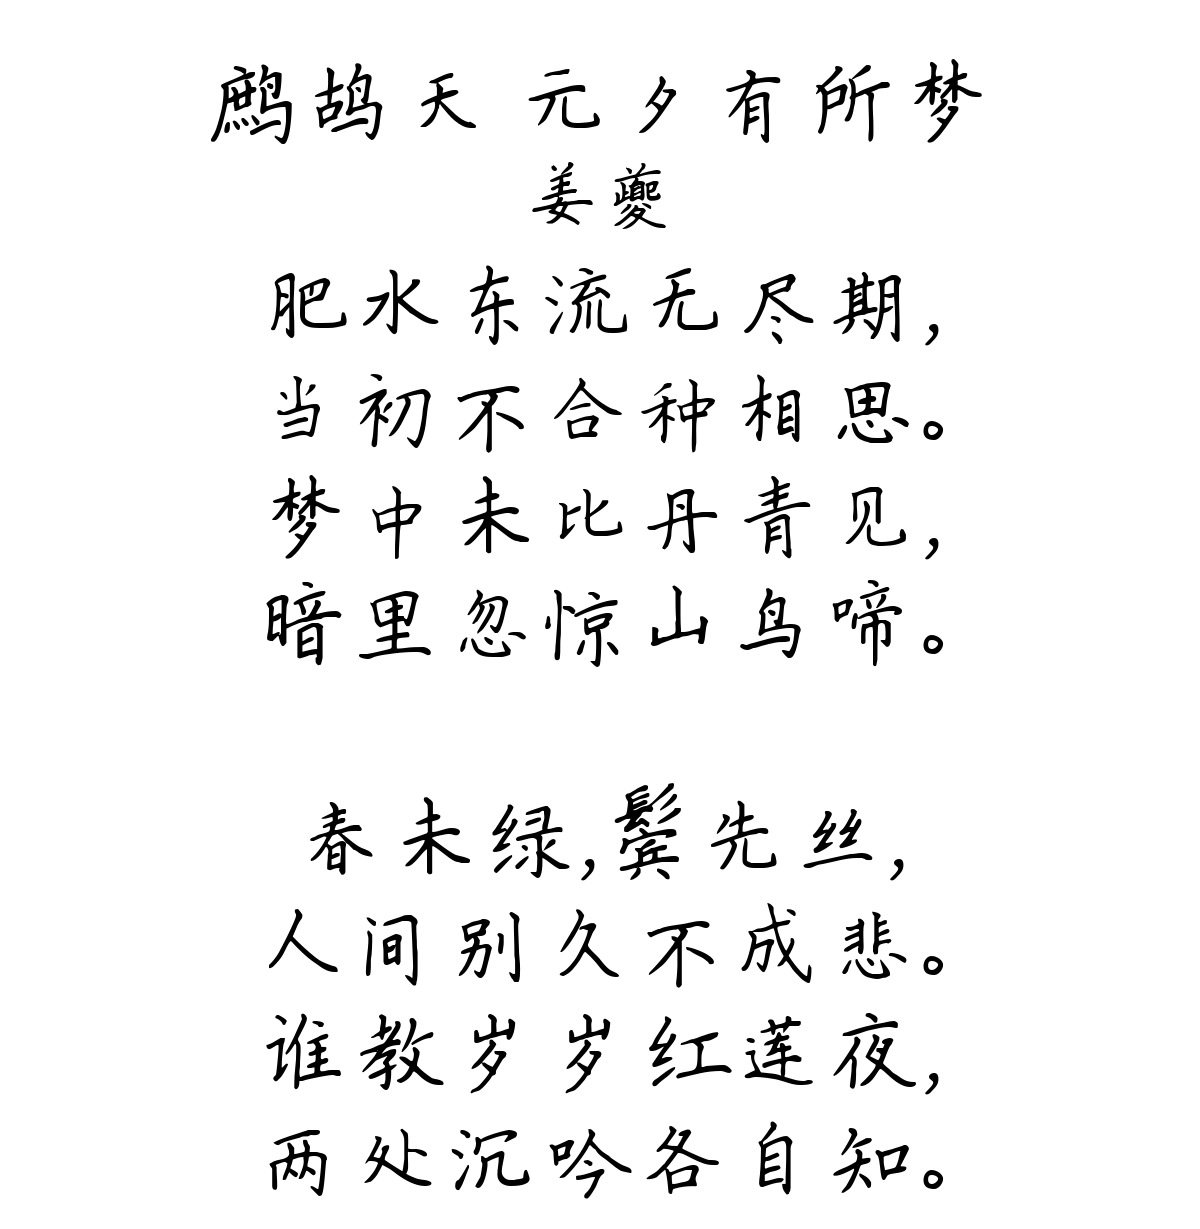 鹧鸪天 元夕有所梦
姜夔
肥水东流无尽期,
当初不合种相思。
梦中未比丹青见,
暗里忽惊山鸟啼。
春未绿,鬓先丝,
人间别久不成悲。
谁教岁岁红莲夜,
两处沉吟各自知。